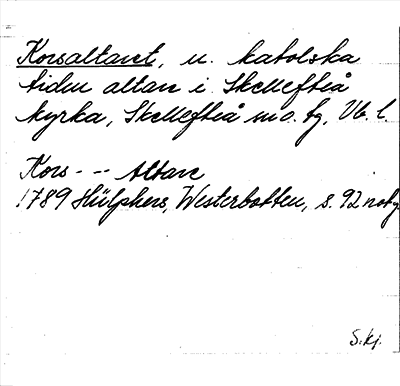 Korsaltaret, u. katolska
tiden altare i Skellefteå
kyrka, Skellefteå sn o. tg, Vb. l.
Kors - - Altare
1789 Hülphers, Westerbotten, s. 92 not g.
S.kj.